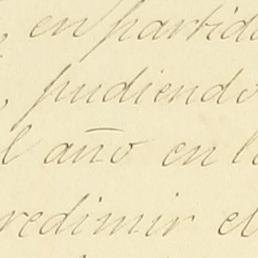 , en partid
, pudiendo
l año en l
redimir el